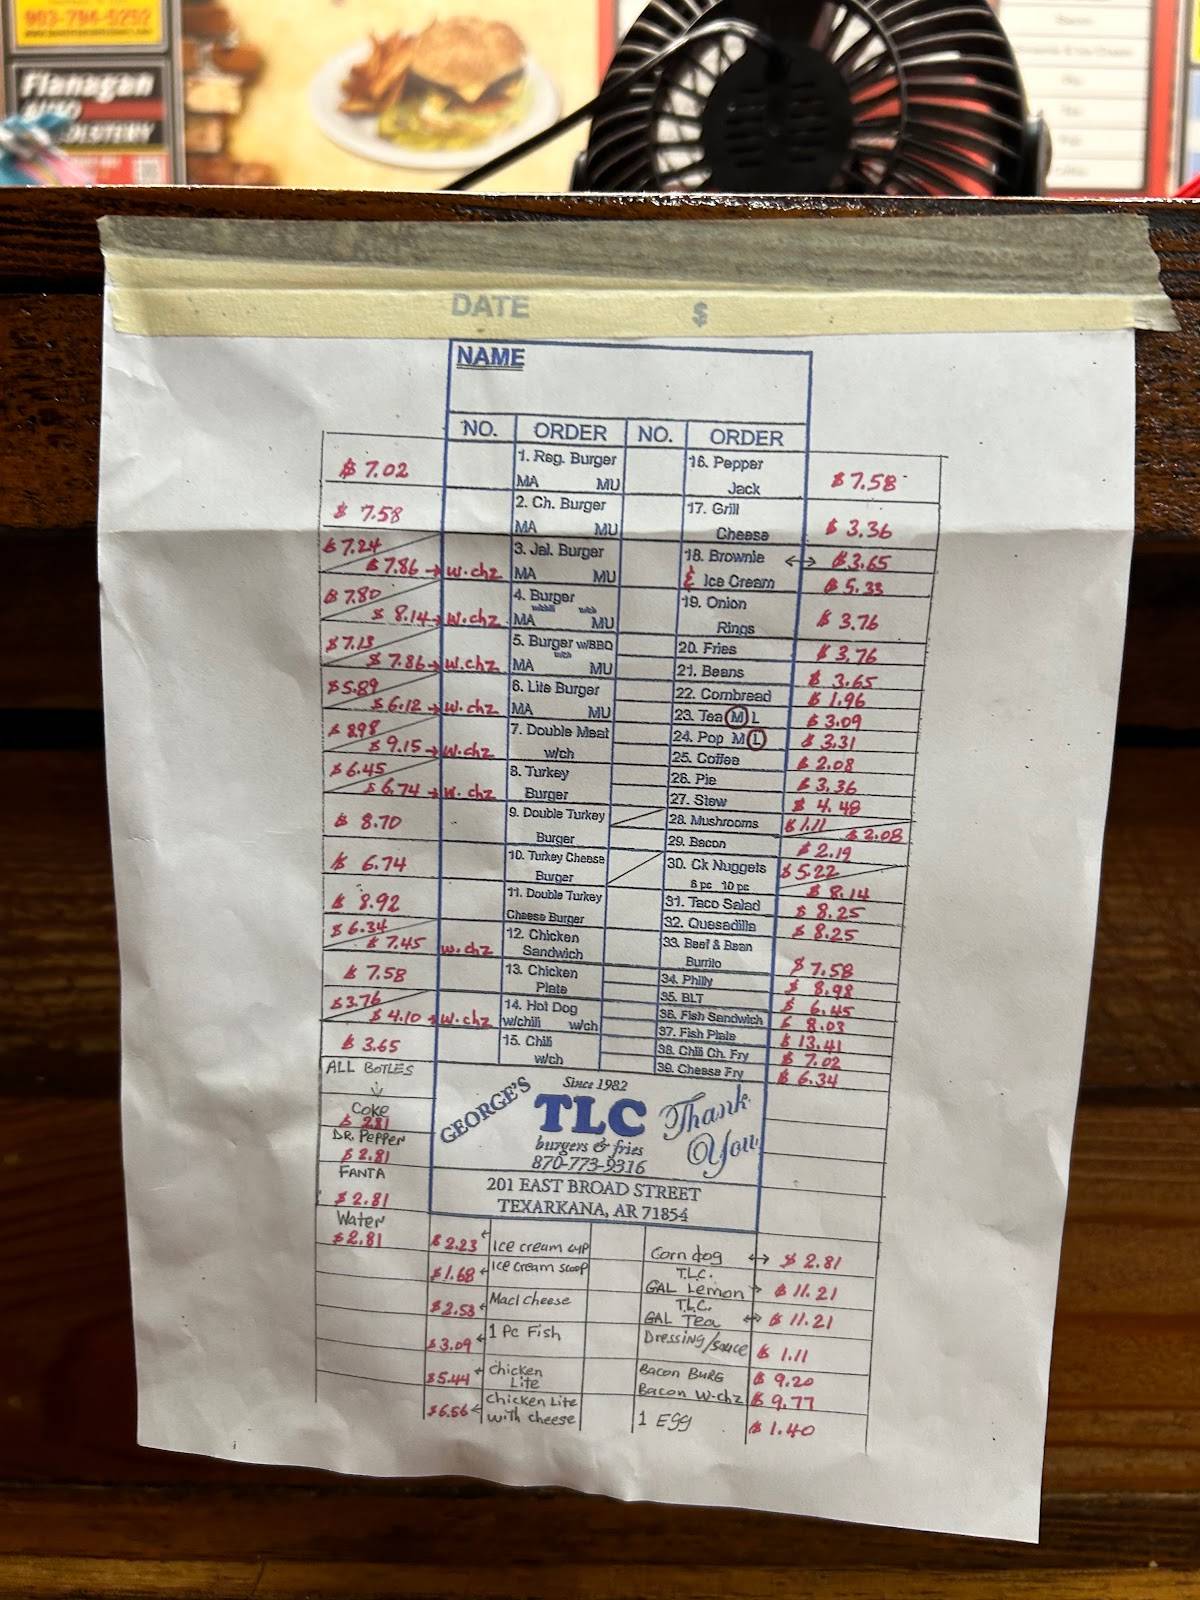 903-794-5252
Flanagan
AUTO
DATE $
NAME
NO. ORDER NO. ORDER
$ 7.02 1. Reg. Burger 16. Pepper $ 7.58
MA MU Jack
$ 7.58 2. Ch. Burger 17. Grill $ 3.36
MA MU Cheese
$ 7.24 3. Jal. Burger 18. Brownie ↔ $3.65
$ 7.86 → w.chz MA MU & Ice Cream $ 5.33
$ 7.80 4. Burger 19. Onion $ 3.76
w/chili w/ch
$ 8.14 → w.chz MA MU Rings
$ 7.13 5. Burger w/BBQ 20. Fries $ 3.76
w/ch
$ 7.86 → w.chz MA MU 21. Beans $ 3.65
$ 5.89 6. Lite Burger 22. Cornbread $ 1.96
$ 6.12 → w.chz MA MU 23. Tea M L $ 3.09
$ 8.98 7. Double Meat 24. Pop M L $ 3.31
$ 9.15 → w.chz w/ch 25. Coffee $ 2.08
$ 6.45 8. Turkey 26. Pie $ 3.36
$ 6.74 → w.chz Burger 27. Stew $ 4.48
$ 8.70 9. Double Turkey 28. Mushrooms $ 1.11 $ 2.08
Burger 29. Bacon $ 2.19
$ 6.74 10. Turkey Cheese 30. Ck Nuggets $ 5.22
Burger 6 pc 10 pc $ 8.14
$ 8.92 11. Double Turkey 31. Taco Salad $ 8.25
Cheese Burger 32. Quesadilla $ 8.25
$ 6.34 12. Chicken 33. Beef & Bean
$ 7.45 w.chz Sandwich Burrito $ 7.58
$ 7.58 13. Chicken 34. Philly $ 8.98
Plate 35. BLT $ 6.45
$ 3.76 14. Hot Dog 36. Fish Sandwich $ 8.03
$ 4.10 → w.chz w/chili w/ch 37. Fish Plate $ 13.41
$ 3.65 15. Chili 38. Chili Ch. Fry $ 7.02
w/ch 39. Cheese Fry $ 6.34
ALL BOTLES
↓
Coke
$ 2.81
DR. PEPPER
$ 2.81
FANTA
$ 2.81
Water
$ 2.81
Since 1982
GEORGE'S TLC Thank You
burgers & fries
870-773-9316
201 EAST BROAD STREET
TEXARKANA, AR 71854
$ 2.23 ← Ice cream cup Corn dog ↔ $ 2.81
$1.68 ← Ice cream scoop T.L.C. GAL Lemon → $ 11.21
$2.53 ← Macl cheese T.L.C. GAL Tea ↔ $ 11.21
$3.09 ← 1 Pc Fish Dressing/sauce $ 1.11
$5.44 ← chicken Lite Bacon BURG $ 9.20
Bacon w-chz $ 9.77
$6.56 ← chicken Lite with cheese 1 Egg $ 1.40